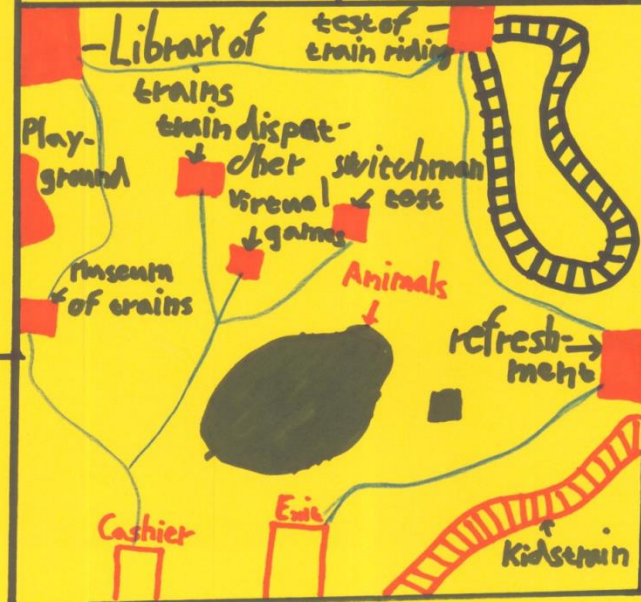 Library of
trains
test of
train riding
Play-
ground
train dispat-
cher
virtual
games
switchman
test
museum
of trains
Animals
refresh-
ment
Cashier
Exit
Kidstrain